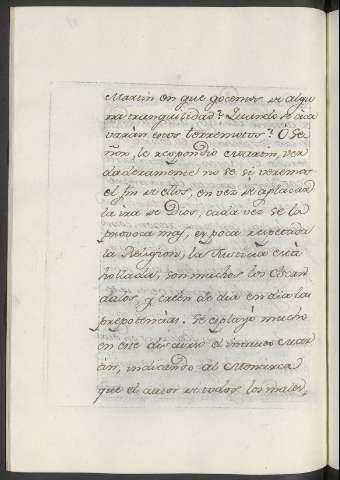 Martin en que gocemos de algu
na tranquilidad? Quando se aca
varán estos terremotos? O Se
ñor, le respondio Martin, ver
daderamente no se si veremos
el fin de ellos, en vez de aplacar
la ira de Dios, cada vez se la
provoca mas, es poca respetada
la Religion, la Justicia está
hollada, son muchos los escan
dalos, y crecen de dia en dia las
prepotencias. Se esplayó mucho
en este discurso el mismo Mar
tin, indicando al Monarca
que el autor de todos los males,